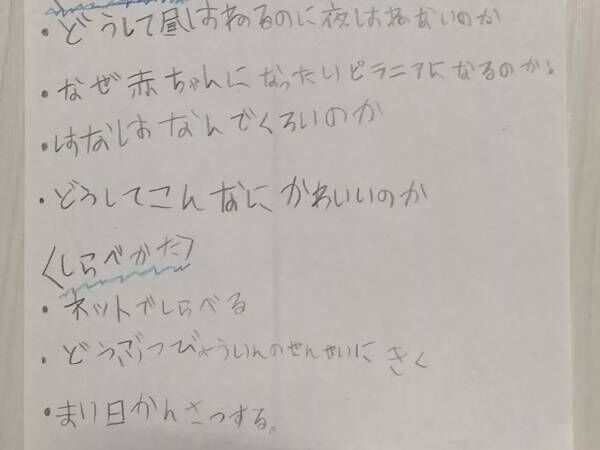 ・どうして昼はねるのに夜はねないのか
・なぜ赤ちゃんになったいピラニアになるのか。
・はなはなんでくろいのか
・どうしてこんなにかわいいのか
〈しらべかた〉
・ネットでしらべる
・どうぶつびょういんのせんせいにきく
・まい日かんさつする。